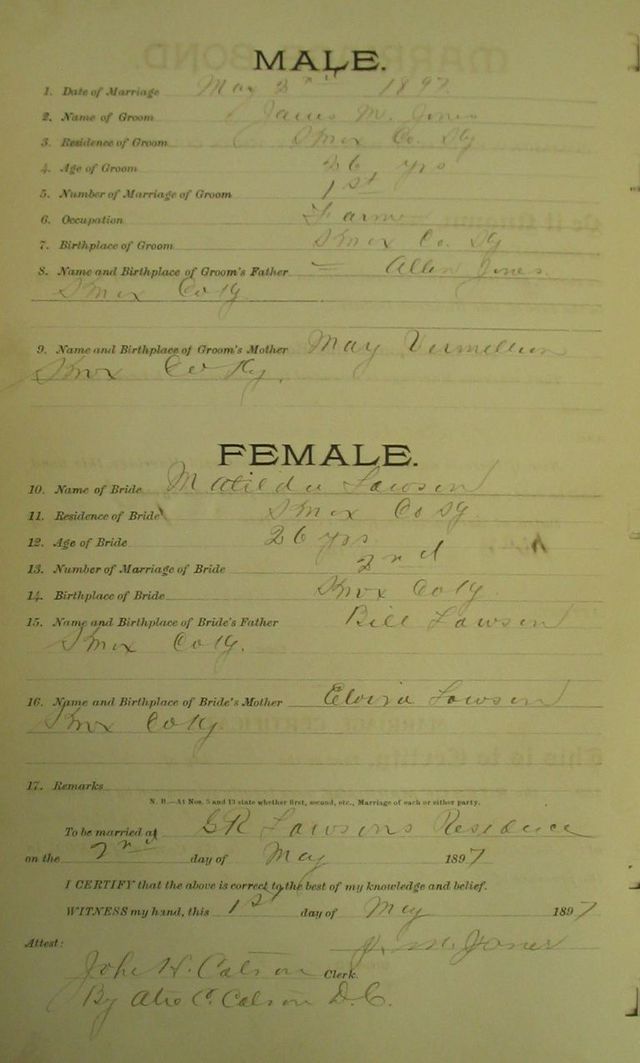 MALE.
1. Date of Marriage May 2nd 1897
2. Name of Groom James M. Jones
3. Residence of Groom Knox Co. Ky
4. Age of Groom 26 yrs
5. Number of Marriage of Groom 1st
6. Occupation Farmer
7. Birthplace of Groom Knox Co. Ky
8. Name and Birthplace of Groom's Father Allen Jones.
Knox Co Ky
9. Name and Birthplace of Groom's Mother May Vermellion
Knox Co Ky.
FEMALE.
10. Name of Bride Matilda Lawson
11. Residence of Bride Knox Co Ky.
12. Age of Bride 26 yrs
13. Number of Marriage of Bride 2nd
14. Birthplace of Bride Knox Co Ky.
15. Name and Birthplace of Bride's Father Bill Lawson
Knox Co Ky.
16. Name and Birthplace of Bride's Mother Elvira Lawson
Knox Co Ky
17. Remarks
N. B.—At Nos. 5 and 13 state whether first, second, etc., Marriage of each or either party.
To be married at GR Lawsons Residence
on the 2nd day of May 1897
I CERTIFY that the above is correct to the best of my knowledge and belief.
WITNESS my hand, this 1st day of May 1897
Attest: J. M. Jones
John H. Catson Clerk.
By C. Catson D.C.